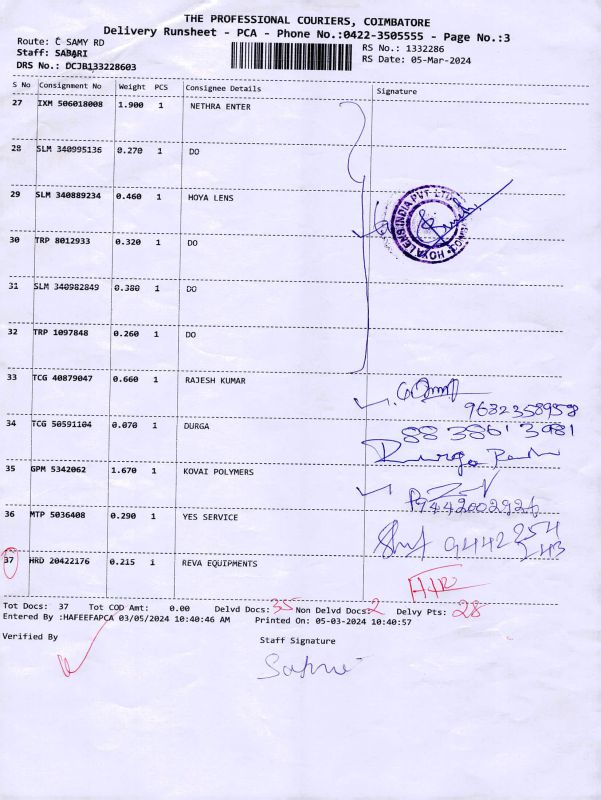 THE PROFESSIONAL COURIERS, COIMBATORE
Delivery Runsheet - PCA - Phone No.:0422-3505555 - Page No.:3
Route: C SAMY RD
Staff: SABARI
DRS No.: DCJB133228603
RS No.: 1332286
RS Date: 05-Mar-2024
S No Consignment No Weight PCS Consignee Details Signature
27 IXM 506018008 1.900 1 NETHRA ENTER
28 SLM 340995136 0.270 1 DO
29 SLM 340889234 0.460 1 HOYA LENS
HOYA LENS INDIA PVT. LTD.
30 TRP 8012933 0.320 1 DO
31 SLM 340982849 0.380 1 DO
32 TRP 1097848 0.260 1 DO
33 TCG 40879047 0.660 1 RAJESH KUMAR
9682358958
34 TCG 50591104 0.070 1 DURGA
8838613981
Durga
35 GPM 5342062 1.670 1 KOVAI POLYMERS
36 MTP 5036408 0.290 1 YES SERVICE
9442254
243
37 HRD 20422176 0.215 1 REVA EQUIPMENTS
Tot Docs: 37 Tot COD Amt: 0.00 Delvd Docs: 35 Non Delvd Docs: 2 Delvy Pts: 28
Entered By :HAFEEFAPCA 03/05/2024 10:40:46 AM Printed On: 05-03-2024 10:40:57
Verified By Staff Signature